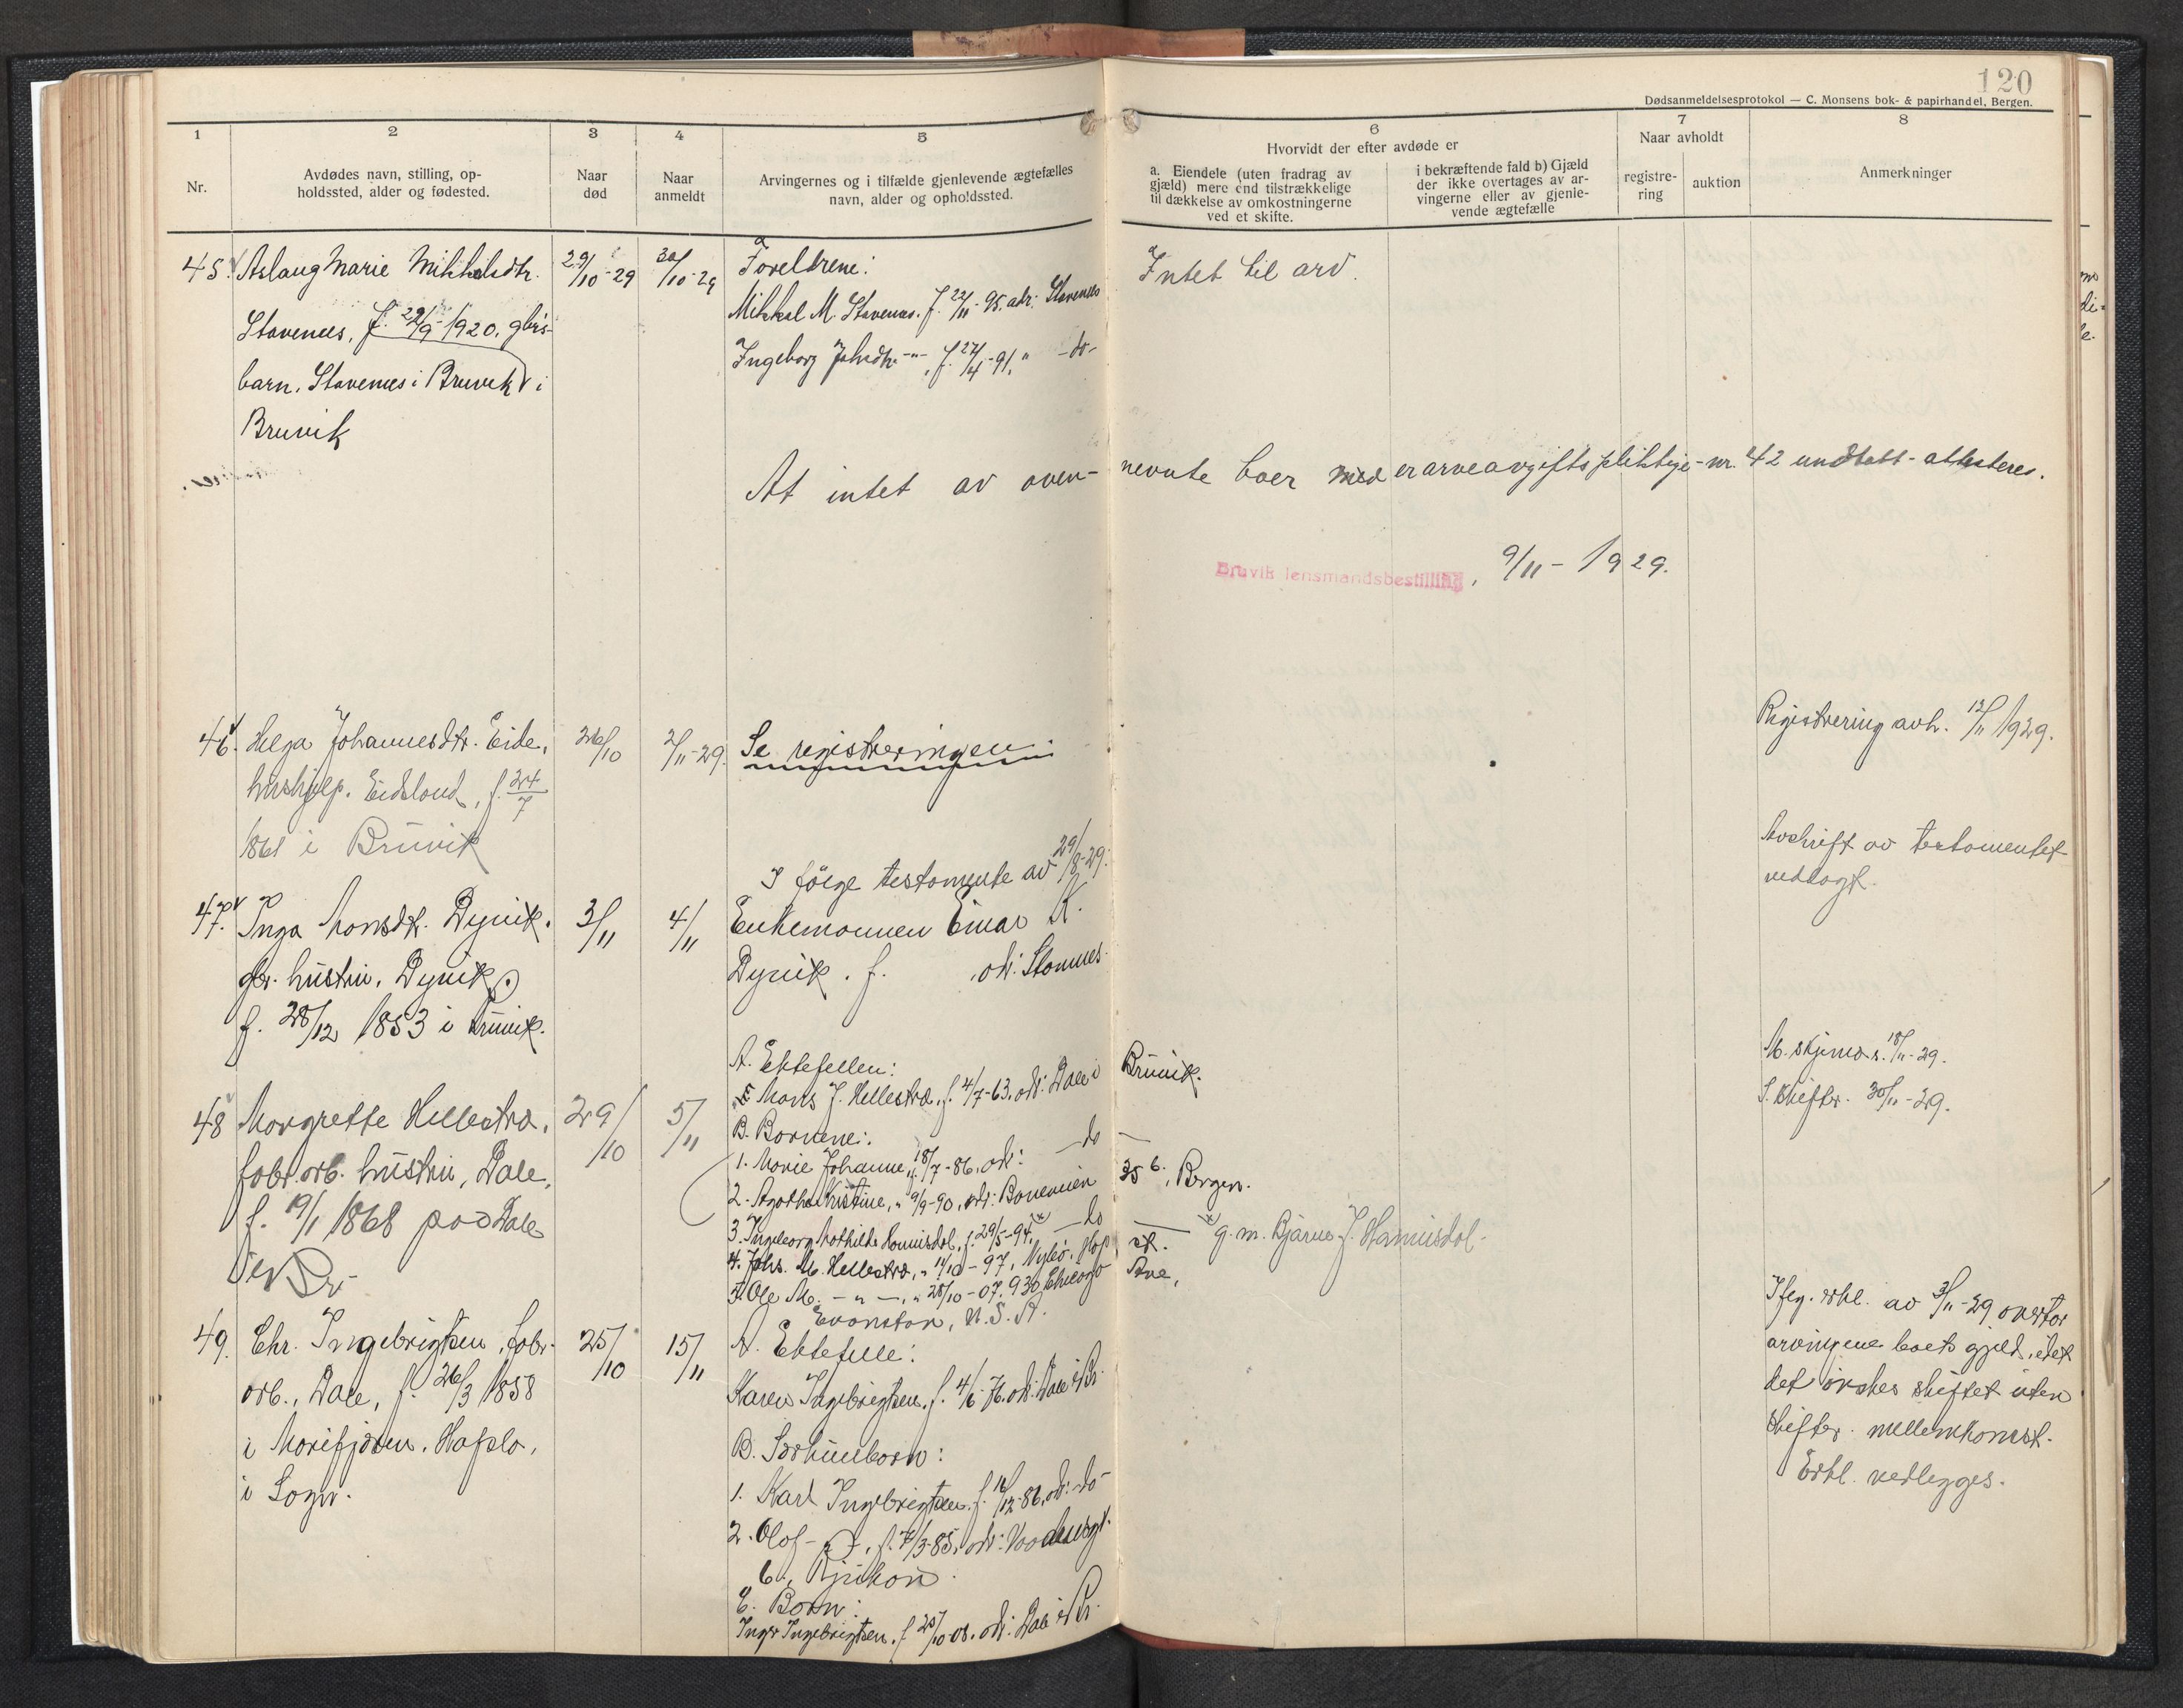 120
Dødsanmeldelsesprotokol — C. Monsens bok- & papirhandel, Bergen.
1
2
3
4
5
6
7
8
Nr.
Avdødes navn, stilling, op-
holdssted, alder og fødested.
Naar
død
Naar
anmeldt
Arvingernes og i tilfælde gjenlevende ægtefælles
navn, alder og opholdssted.
Hvorvidt der efter avdøde er
a. Eiendele (uten fradrag av
gjæld) mere end tilstrækkelige
til dækkelse av omkostningerne
ved et skifte.
i bekræftende fald b) Gjæld
der ikke overtages av ar-
vingerne eller av gjenle-
vende ægtefælle
Naar avholdt
registre-
ring
auktion
Anmerkninger
45. Aslaug Marie Mikkelsdtr.
Stavenes, f. 29/9-1920, gbrs-
barn, Stavenes i Bruvik i
Bruvik
29/10-29
30/10-29
Foreldrene:
Mikkal M. Stavenes. f. 22/11-95. adr: Stavenes
Ingeborg Johsdtr -"- , f. 27/4-91, " -do-
Intet til arv.
At intet av oven-nevnte boer er arveavgiftspliktige - nr. 42 undtatt - attesteres.
Bruvik lensmandsbestilling, 9/11-1929.
46. Helga Johannesdtr. Eide,
hushjelp. Eidsland, f. 24/7
1861 i Bruvik
26/10
2/11-29.
Se registreringen.
Registrering avh. 12/11 1929.
47. Inga Monsdt. Dyvik.
gbr. hustru, Dyvik,
f. 28/12 1853 i Bruvik.
3/11
4/11
I følge testamente av 29/8-29:
Enkemannen Einar K.
Dyvik. f. , adr: Stamnes.
Avskrift av testamentet
vedlagt.
48 Margrette Hellestræ,
fabr.arb. hustru, Dale,
f. 19/1 1868 paa Dale
29/10
5/11
A. Ektefellen:
Mons J. Hellestræ, f. 4/7-63, adr: Dale i Bruvik.
B. Barnene:
1. Marie Johanne, f. 18/7-86, adr: -do-
2. Agatha Kristine, " 9/9-90, adr: 35 b, Bergen.
3. Ingeborg Mathilde Hamisdal, f. 29/5-94, -do- g. m. Bjarne J. Hamisdal.
4. Johs. M. Hellestræ, " 11/10-97, Hop st.
5. Ole M. -"-, " 28/10-07. 930 Chicago Ave,
Evanston, U.S.A.
M. skjema s. 18/11-29.
S. skifter. 30/11-29.
49. Chr. Ingebrigtsen, fabr.
arb., Dale, f. 26/3 1858
i Marifjøren, Hafslo,
i Sogn.
25/10
15/11
A. Ektefelle:
Karen Ingebrigtsen, f. 4/6-76. adr: Dale i Br.
B. Særkullbarn:
1. Karl Ingebrigtsen, f. 16/12-86, adr: -do-
2. Olof -"-, f. 7/3-85, adr:
6, Rjukan.
C. Barn:
Inga Ingebrigtsen, f. 25/10-08. adr: Dale i Br.
Ifg. erkl. av 3/11-29 overtar
arvingene boets gjeld, idet
det ønskes skiftet uten
skifter. mellemkomst.
Erkl. vedlegges.